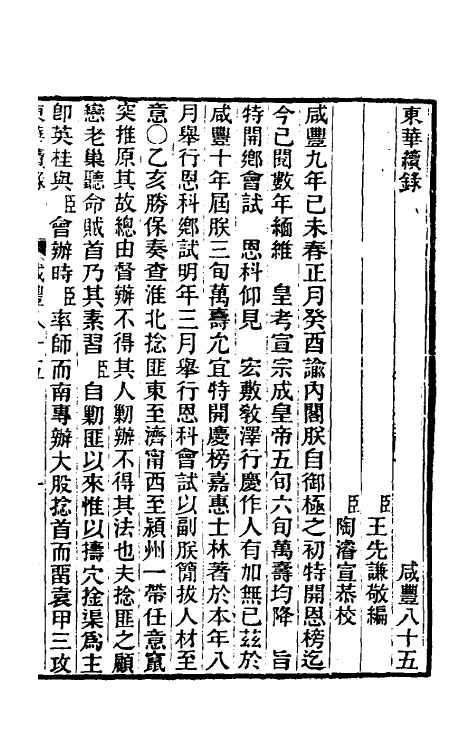 東華續錄 咸豐八十五
臣王先謙敬編
臣陶濬宣恭校
咸豐九年己未春正月癸酉諭內閣朕自御極之初特開恩榜迄
今已閱數年緬維 皇考宣宗成皇帝五旬六旬萬壽均降 旨
特開鄉會試 恩科仰見 宏敷敎澤行慶作人有加無已茲於
咸豐十年屆朕三旬萬壽允宜特開慶榜嘉惠士林著於本年八
月舉行恩科鄉試明年三月舉行恩科會試以副朕簡拔人材至
意○乙亥勝保奏查淮北捻匪東至濟甯西至潁州一帶任意竄
突推原其故總由督辦不得其人勦辦不得其法也夫捻匪之顧
戀老巢聽命賊首乃其素習 臣自勦匪以來惟以擣穴捦渠爲主
卽英桂與 臣會辦時 臣率師而南專辦大股捻首而畱袁甲三攻
東華續錄 咸豐八十五 一